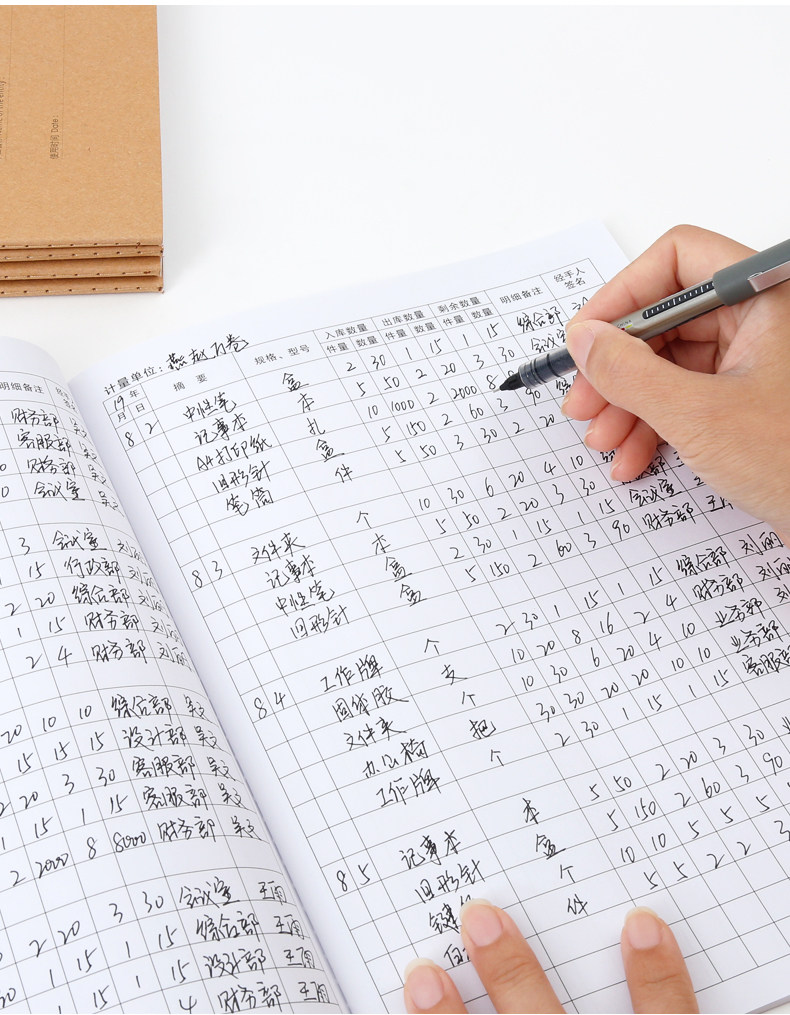 使用时间 Date
计量单位：燕赵万卷
19年 摘要 规格、型号 入库数量 出库数量 剩余数量 明细备注 经手人签名
月 日 件量 数量 件量 数量 件量 数量
8 2 中性笔 盒 2 30 1 15 1 15 综合部
记事本 本 5 50 2 20 3 30 会议室
A4打印纸 扎 10 1000 2 2000 8
回形针 盒 5 150 2 60 3 90
笔筒 件 5 50 3 30 2 20
8 3 文件夹 个 10 30 6 20 4 10
记事本 本 5 50 2 20 3 30 会议室
中性笔 盒 2 30 1 15 1 15 财务部 王雨
回形针 盒 5 150 2 60 3 90
8 4 工作牌 个 2 30 1 15 1 15 综合部 刘丽
固体胶 支 10 20 8 16 2 4 财务部 刘丽
文件夹 个 10 30 6 20 4 10 业务部
办公椅 把 30 30 20 20 10 10 业务部
工作牌 个 2 30 1 15 1 15 客服部
8 5 记事本 本 5 50 2 20 3 30
回形针 盒 5 150 2 60 3 90
个 10 10 5 5 5
件 5 5 2 2 3
明细备注
财务部 吴文
客服部 吴文
财务部 吴文
会议室 吴文
3 会议室 刘丽
1 15 行政部 刘丽
2 20 综合部 刘丽
1 15 财务部 刘丽
2 4 财务部 刘丽
20 10 10 综合部 吴文
15 15 15 设计部 吴文
2 20 3 30 客服部 吴文
1 15 1 15 客服部 吴文
2 2000 8 8000 财务部 吴文
2 20 3 30 会议室 王雨
1 15 1 15 综合部 王雨
1 15 1 15 设计部 王雨
4 财务部 王雨